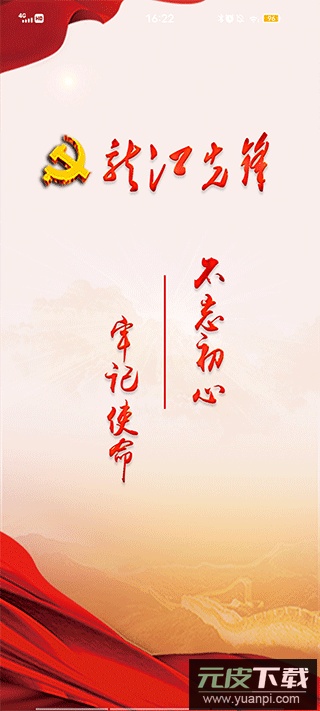 4G HD 16:22 96
龙江先锋
不忘初心
牢记使命
元皮下载
www.yuanpi.com